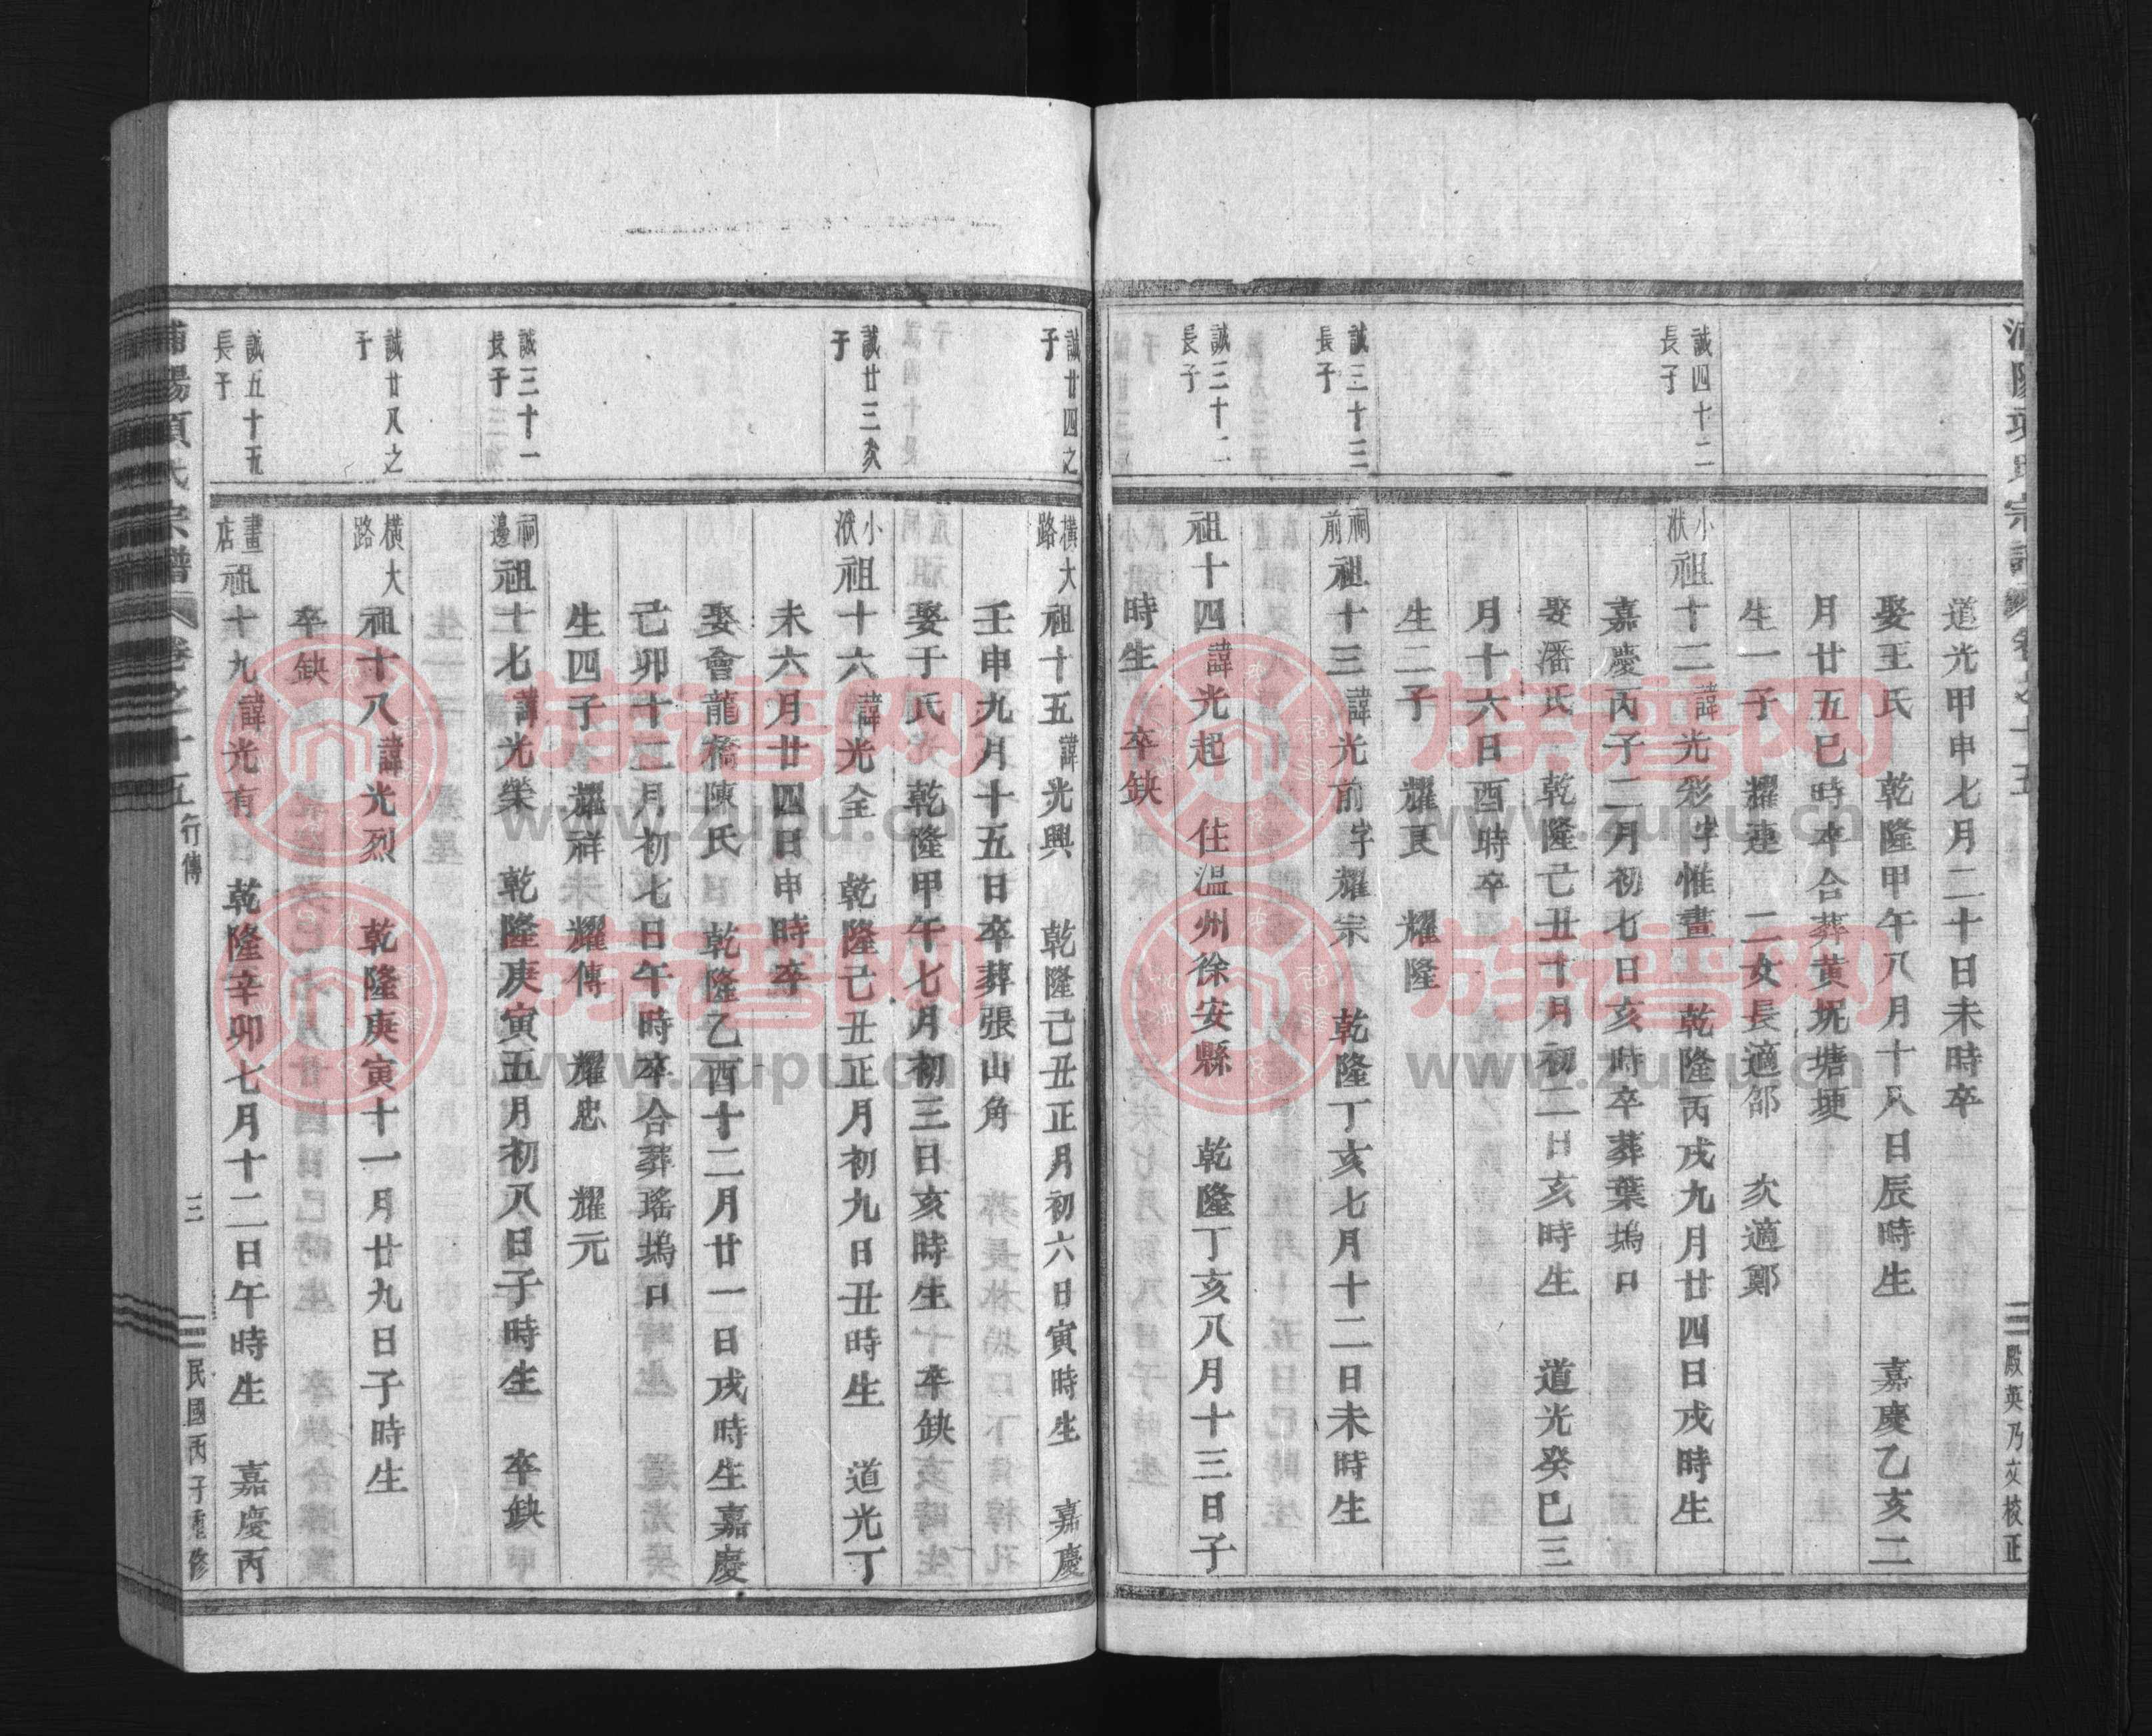 道光甲申七月二十日未時卒
娶王氏 乾隆甲午八月十八日辰時生 嘉慶乙亥二
月廿五巳時卒合葬黄坭塘埂
生一子 耀連 二女長適邵 次適鄭
誠四十二
長子
小
洑
祖十二諱光彩字惟畫 乾隆丙戌九月廿四日戌時生
嘉慶丙子二月初七日亥時卒葬葉塢口
娶潘氏 乾隆己丑十月初二日亥時生 道光癸巳三
月十六日酉時卒
生二子 耀良 耀隆
誠三十三
長子
祠
前
祖十三諱光前字耀宗 乾隆丁亥七月十二日未時生
誠三十二
長子
祖十四諱光起 住温州徐安縣 乾隆丁亥八月十三日子
時生 卒缺
殿英乃文校正
誠廿四之
子
橫大
路
祖十五諱光興 乾隆己丑正月初六日寅時生 嘉慶
壬申九月十五日卒葬張山角
娶于氏 乾隆甲午七月初三日亥時生 卒缺
誠廿三次
子
小
洑
祖十六諱光全 乾隆己丑正月初九日丑時生 道光丁
未六月廿四日申時卒
娶會龍橋陳氏 乾隆乙酉十二月廿一日戌時生嘉慶
己卯十二月初七日午時卒合葬瑤塢口
生四子 耀祥 耀傳 耀忠 耀元
誠三十一
長子
祠
邊
祖十七諱光榮 乾隆庚寅五月初八日子時生 卒缺
誠廿八之
子
橫大
路
祖十八諱光烈 乾隆庚寅十一月廿九日子時生
卒缺
誠五十五
長子
畫
店
祖十九諱光有 乾隆辛卯七月十二日午時生 嘉慶丙
浦陽項氏宗譜 卷之十五 行傳 三 民國丙子重修
族谱网
www.zupu.cn
族谱网
www.zupu.cn
族谱网
www.zupu.cn
族谱网
www.zupu.cn